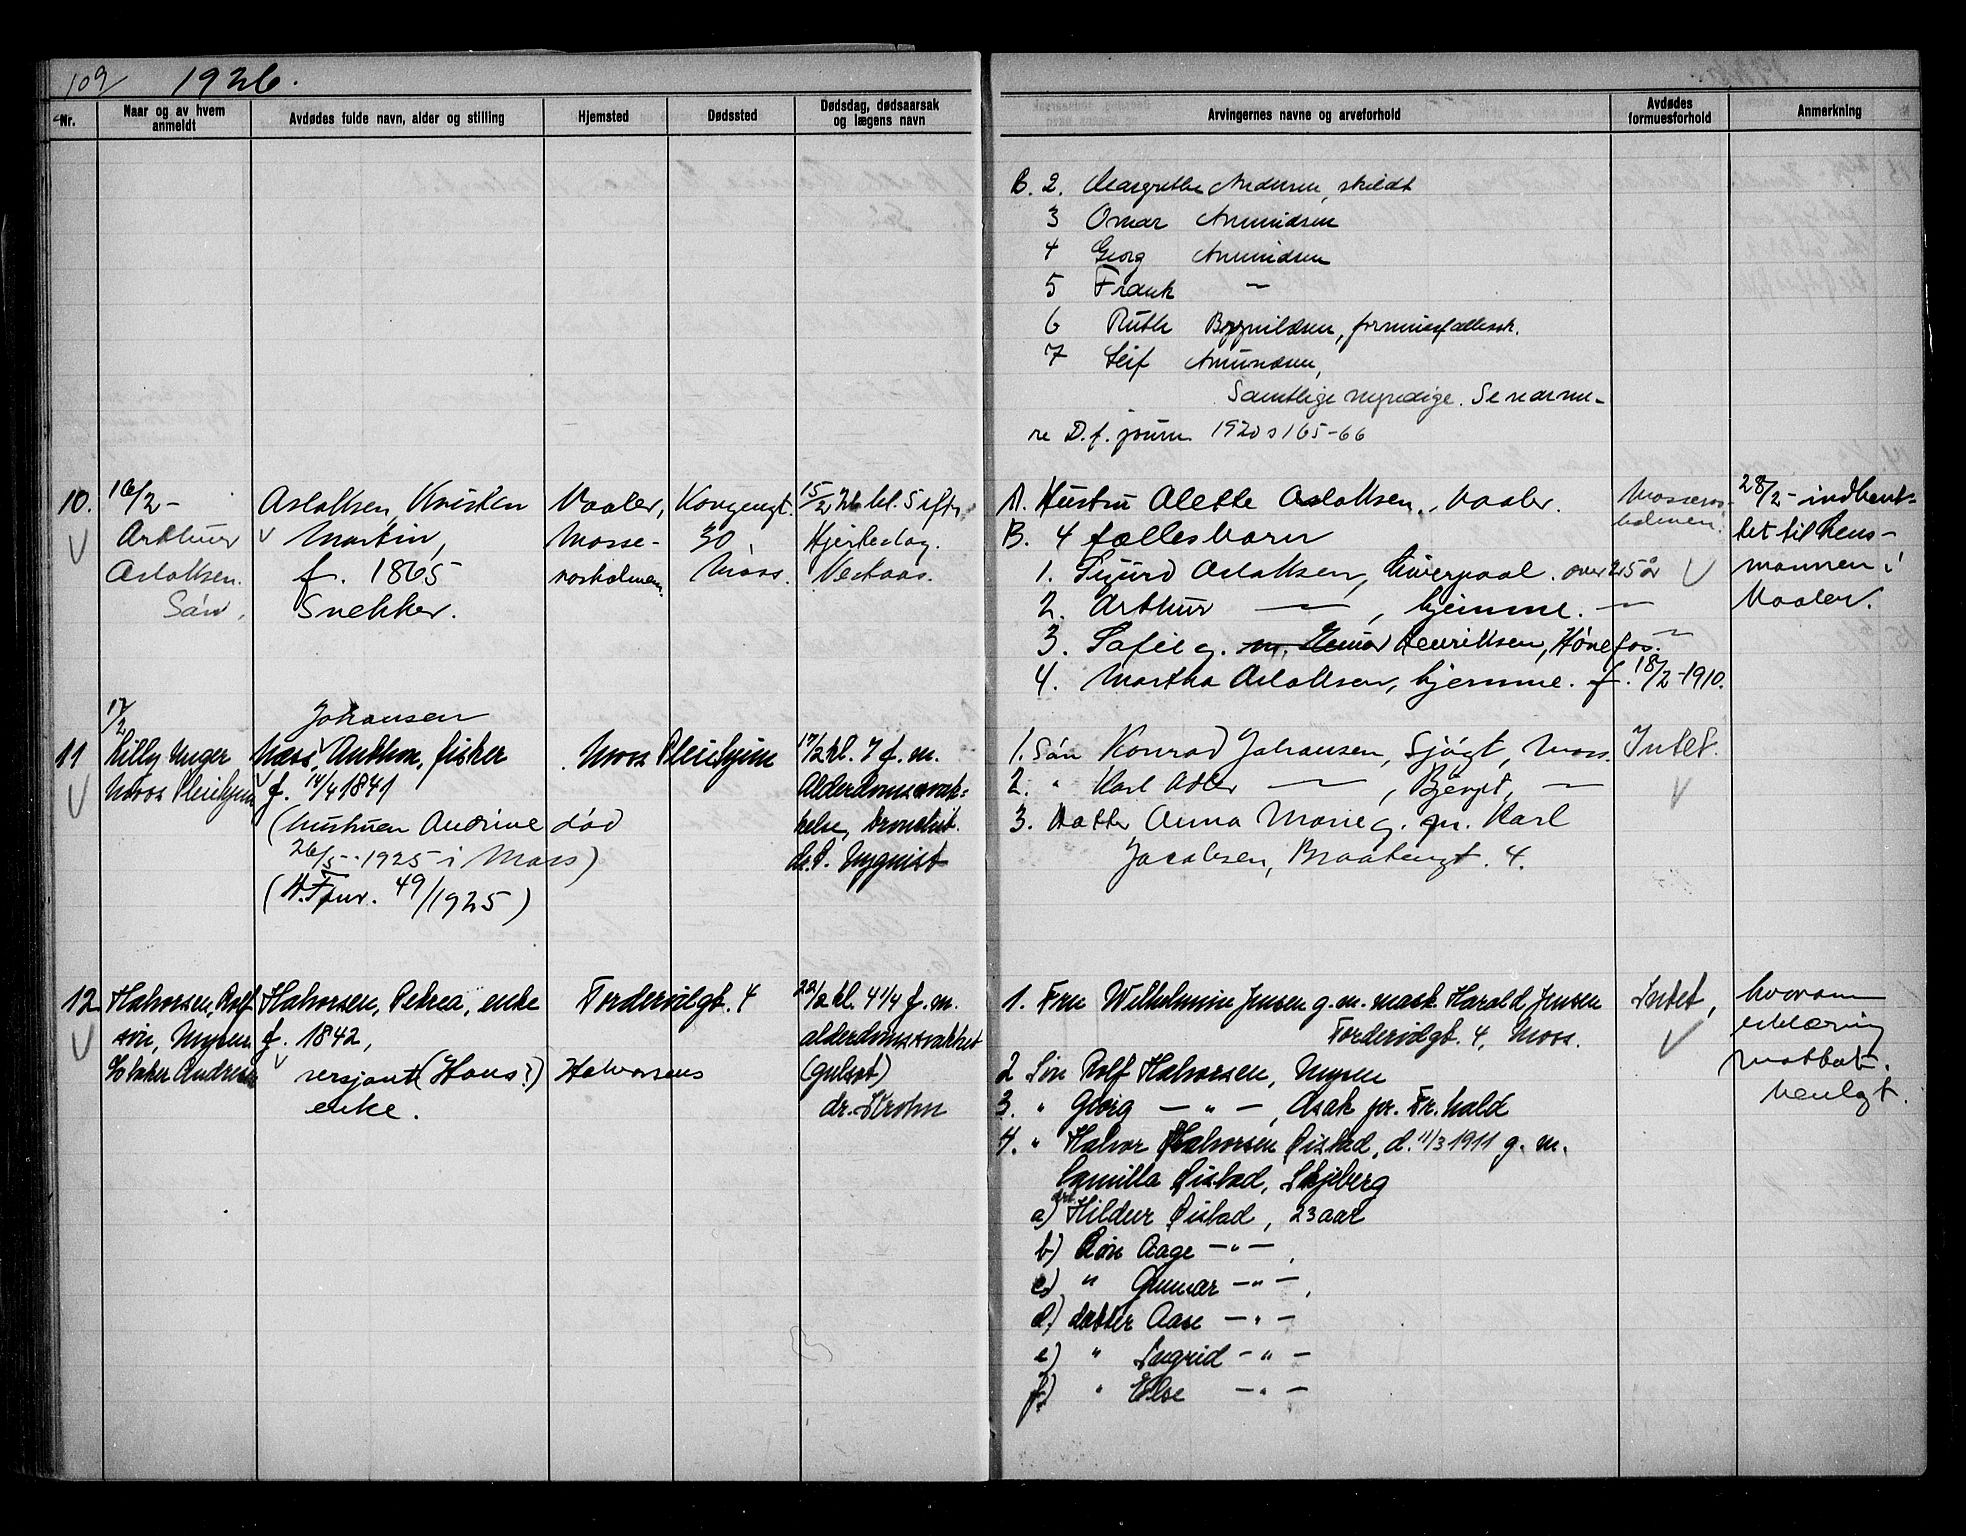 109 1926.
Nr.
Naar og av hvem anmeldt
Avdødes fulde navn, alder og stilling
Hjemsted
Dødssted
Dødsdag, dødsaarsak og lægens navn
Arvingernes navne og arveforhold
Avdødes formuesforhold
Anmerkning
B. 2. Margrethe Andersen, skildt
3 Omar Amundsen
4 Georg Amundsen
5 Frank —
6 Ruth
7 Leif Amundsen,
Samtlige myndige. Se nærme-
re D.f. journ 1920 s 165-66
10.
16/2 -
Arthur
Aslaksen.
Søn.
Aslaksen, Kristen
Martin,
f. 1865
Snekker.
Vaaler,
Mosse-
rosholmen
Kongensgt.
30.
Moss.
15/2 26 kl. 5 eftr.
Hjerteslag.
A. Hustru Alette Aslaksen, Vaaler.
B. 4 fællesbarn
1. Sigurd Aslaksen, Liverpool. over 25 år
2. Arthur — , hjemme. —
3. Sofie g. m. Henriksen, Hønefos. —
4. Martha Aslaksen, hjemme. f. 18/2-1910.
Mosseros-
holmen.
28/2 - indhent-
tet til lens-
mannen i
Vaaler.
11
17/2
Lilly Unger
Moss Pleiehjem
Johansen
Mass, Anthon, fisker
f. 14/4 1841
(hustruen Andrine død
26/5 - 1925 i Moss)
(D.F. jour. 49/1925)
Moss Pleiehjem
17/2 kl. 7 f.m.
Alderdomssvak-
kelse,
dr. P. Nyquist
1. Søn Konrad Johansen, Sjøgt, Moss.
2. " Karl Adler — , Bjergt, —
3. Datter Anna Marie g. m. Karl
Jacobsen, Braatengt. 4.
Intet.
12
Halvorsen, Rolf
søn, Mysen
Halvorsen, Petrea, enke
f. 1842,
sersjant (Hans?) Halvorsens
enke.
Fordersidgt. 4
22/2 kl. 4 1/4 f.m.
alderdomssvakhet
(gulsot)
dr. Strohm
1. Fru Wilhelmine Jensen g.m. mask. Harald Jensen
Fordersidgt. 4, Moss.
2 Søn Rolf Halvorsen, Mysen
3. " Georg — " —, Asak pr. Fr.hald
4. " Halvor Halvorsen Øistad, d. 11/3 1911 g. m.
Camilla Øistad, Skjeberg
a) dat. Hildur Øistad, 23 aar
b) Søn Aage — " — ,
c) " Gunnar — " — ,
d) datter Aase — " —
e) " Ingrid — " —
f) " Else — " —
Intet,
hvorom
erklæring
mottat.
henlagt.